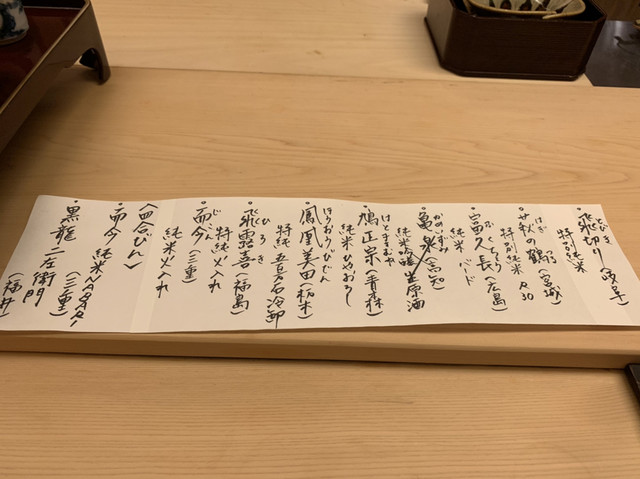 とびきり
・飛切り
特別純米
はぎ つる
・萩の鶴(宮城)
特別純米 R30
ふくちょう
・富久長(広島)
純米 バード
かめいずみ
・亀泉(高知)
純米吟醸生原酒
はとまさむね
・鳩正宗(青森)
純米ひやおろし
ほうおうびでん
・鳳凰美田(栃木)
特純 五百万石冷卸
ひろき
・飛露喜(福島)
特純火入れ
じこん
・而今(三重)
純米火入れ
〈四合びん〉
・而今 純米NABARI
(三重)
・黒龍 二左衛門
(福井)